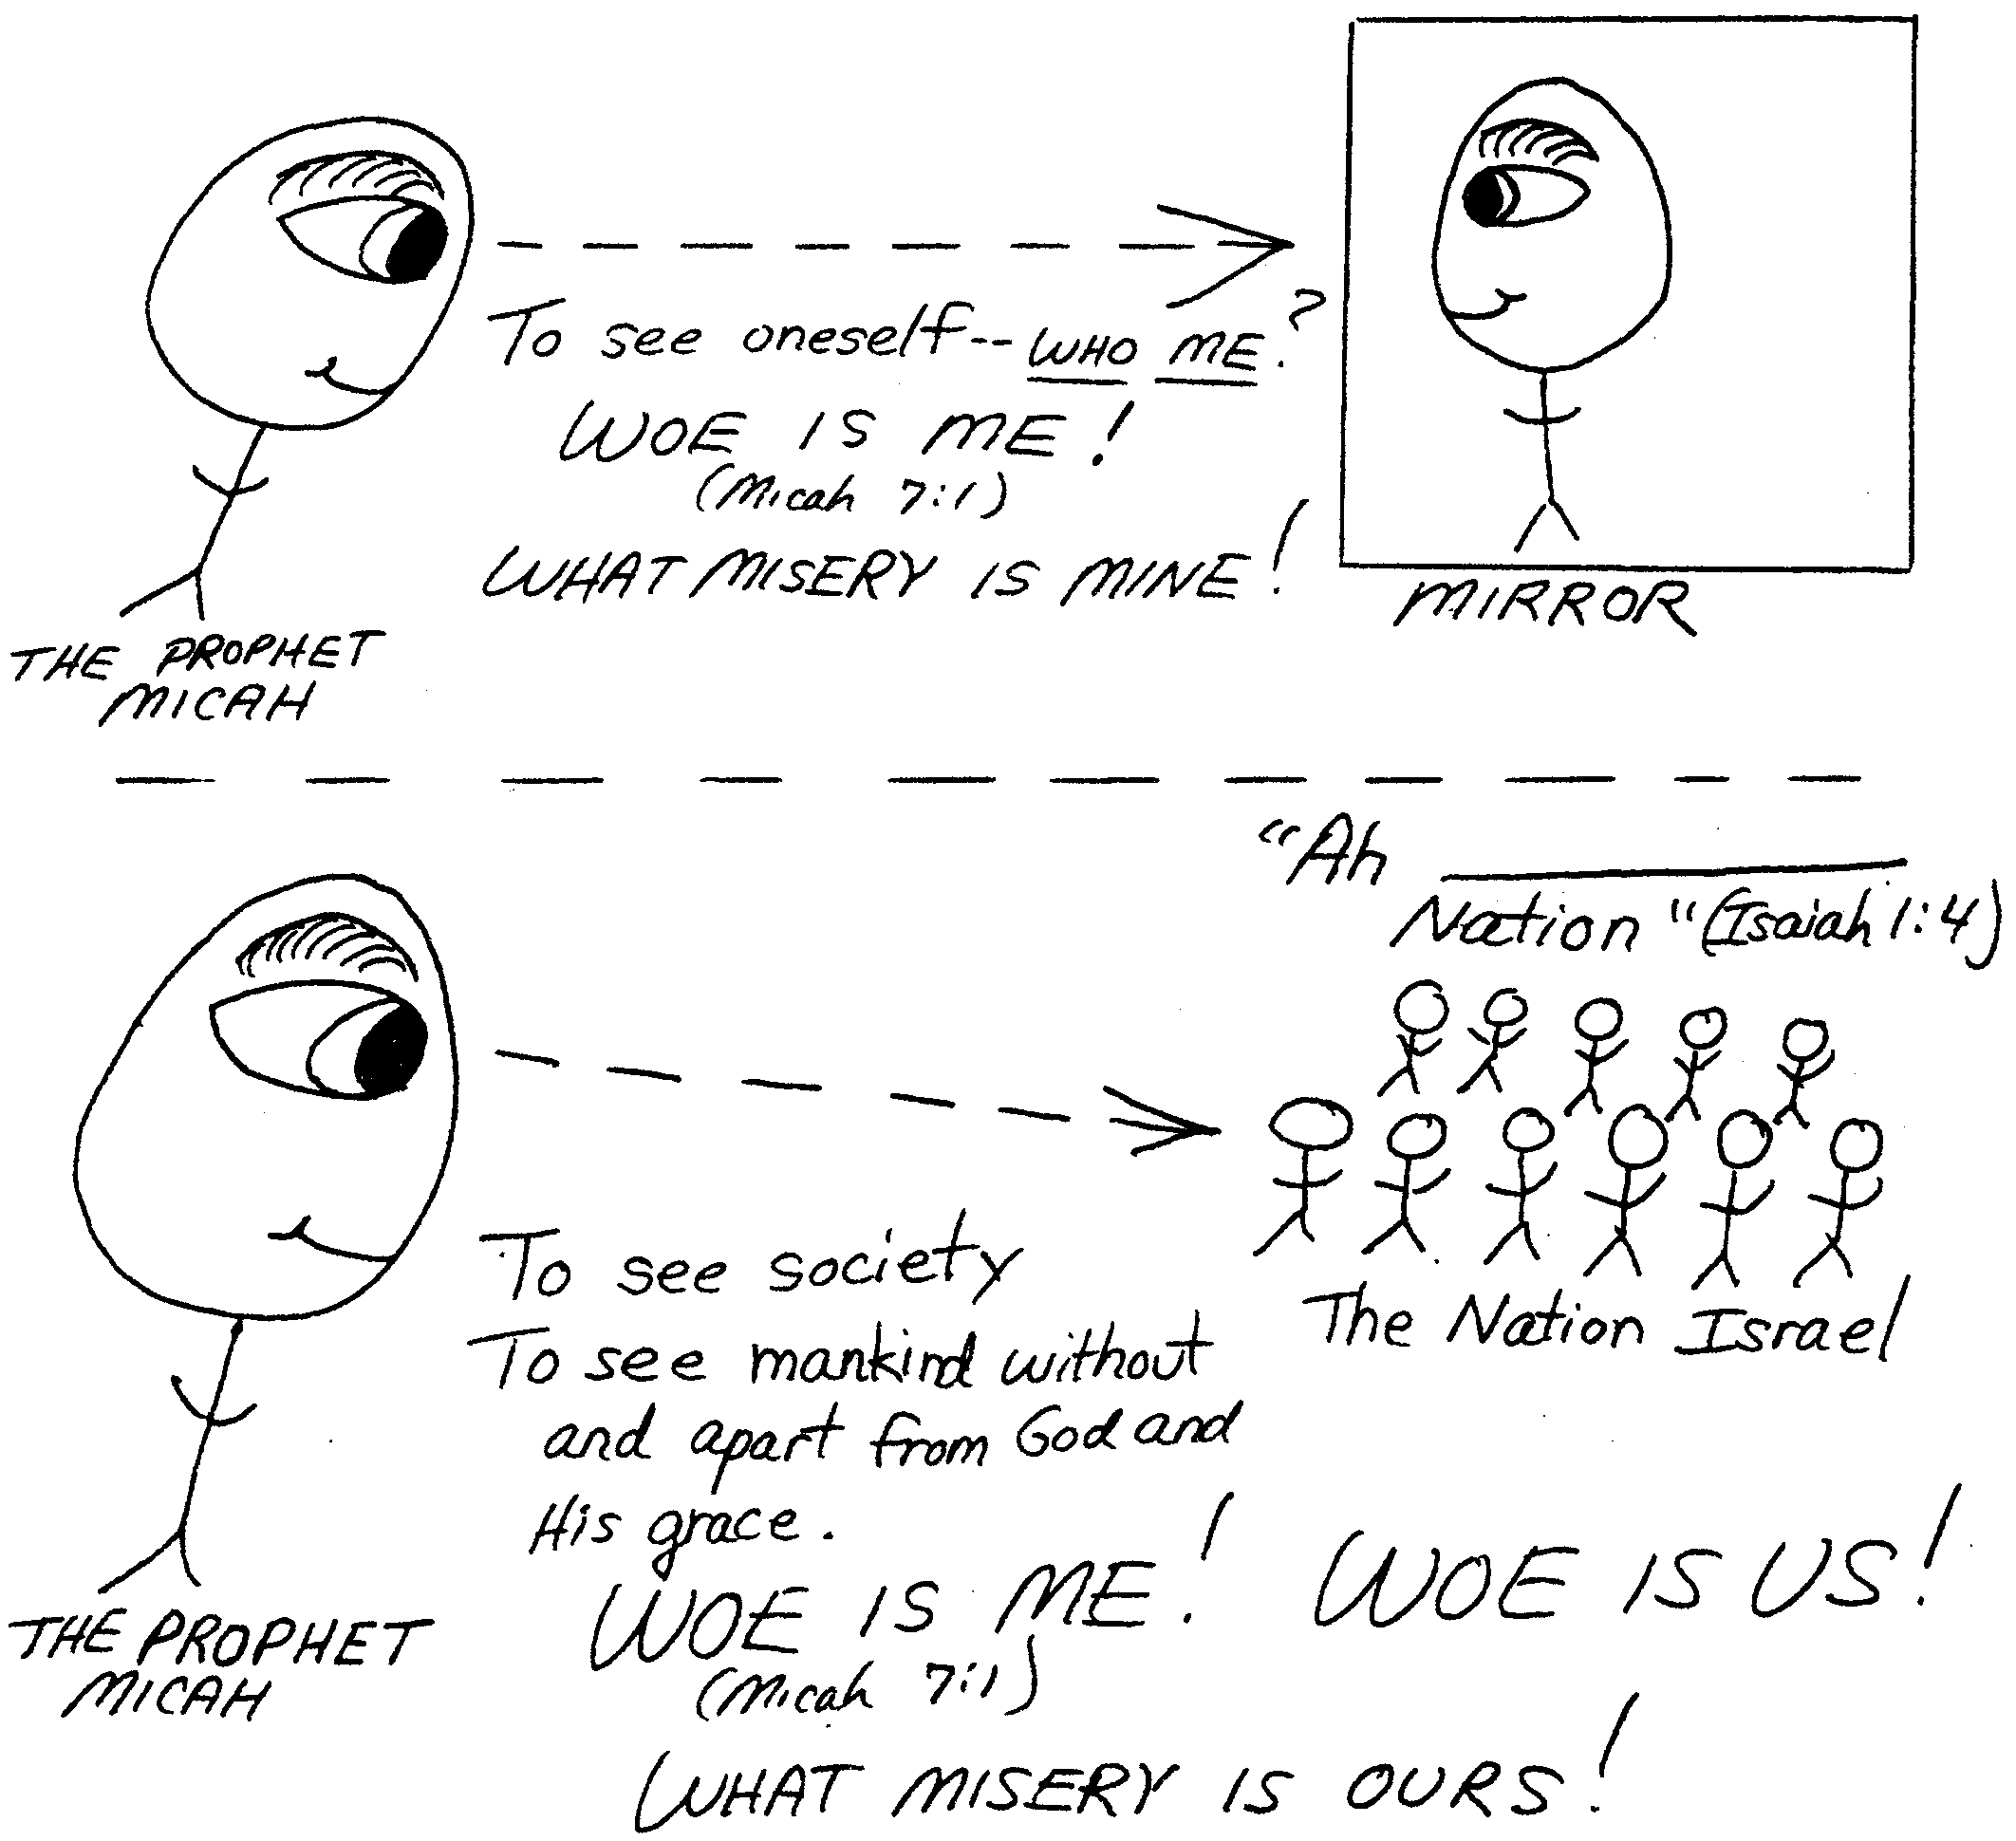 To see oneself--WHO ME?
WOE IS ME!
(Micah 7:1)
WHAT MISERY IS MINE!
MIRROR
THE PROPHET
MICAH
"Ah ________
Nation" (Isaiah 1:4)
The Nation Israel
To see society
To see mankind without
and apart from God and
His grace.
WOE IS ME! WOE IS US!
(Micah 7:1)
THE PROPHET
MICAH
WHAT MISERY IS OURS!